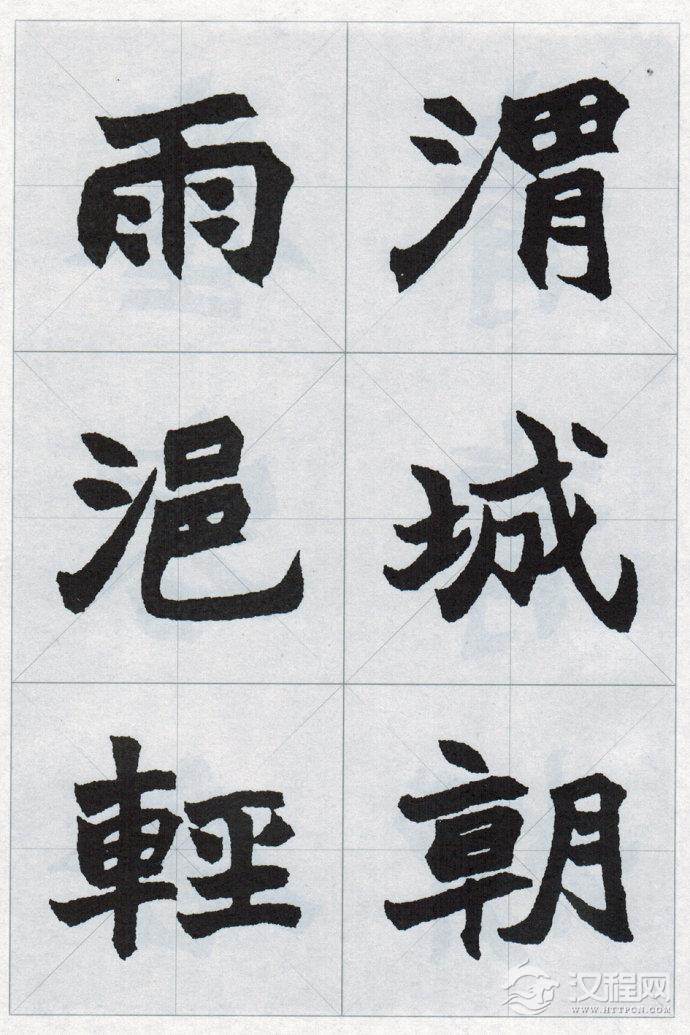 渭城朝
雨浥輕
汉程网
WWW.HTTPCN.COM